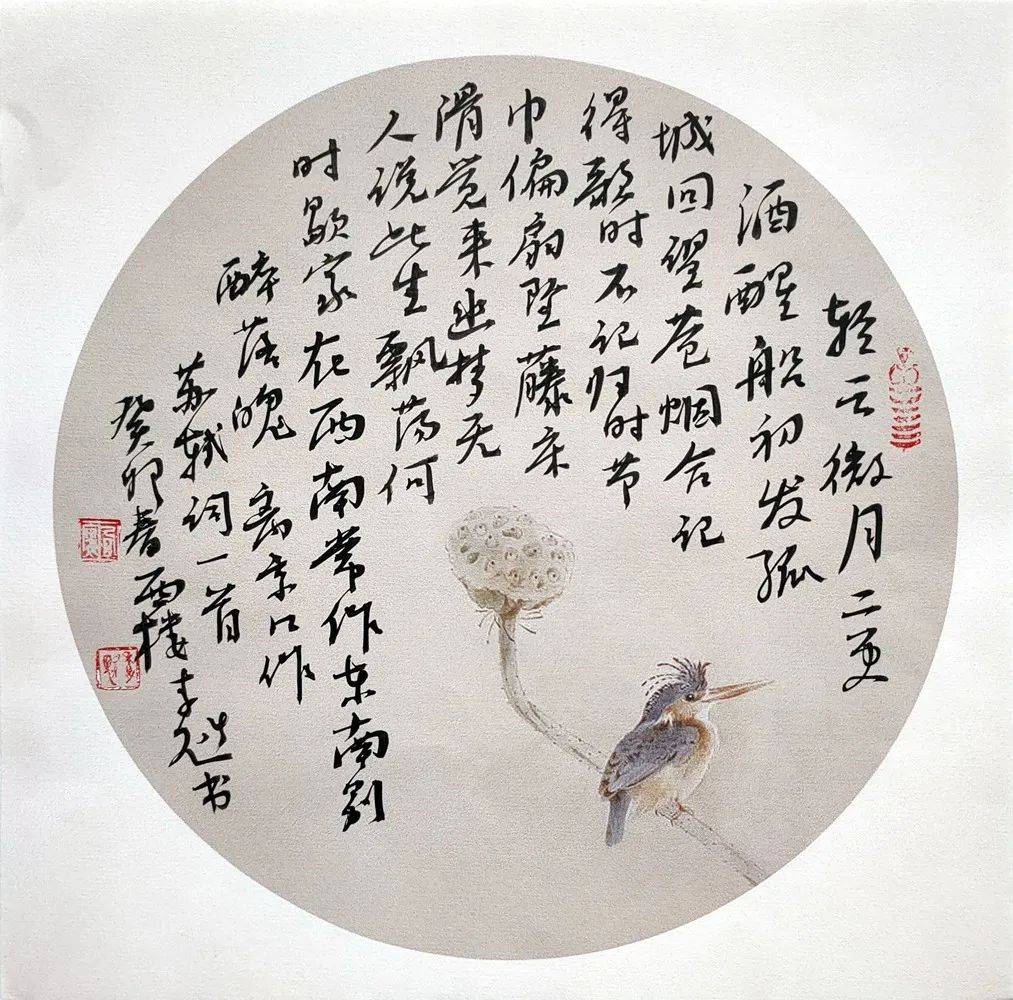 轻云微月二更
酒醒船初发孤
城回望苍烟合记
得歌时不记归时节
巾偏扇坠藤床
滑觉来幽梦无
人说此生飘荡何
时歇家在西南常作东南别
醉落魄 离京口作
苏轼词一首
癸卯春西楼书